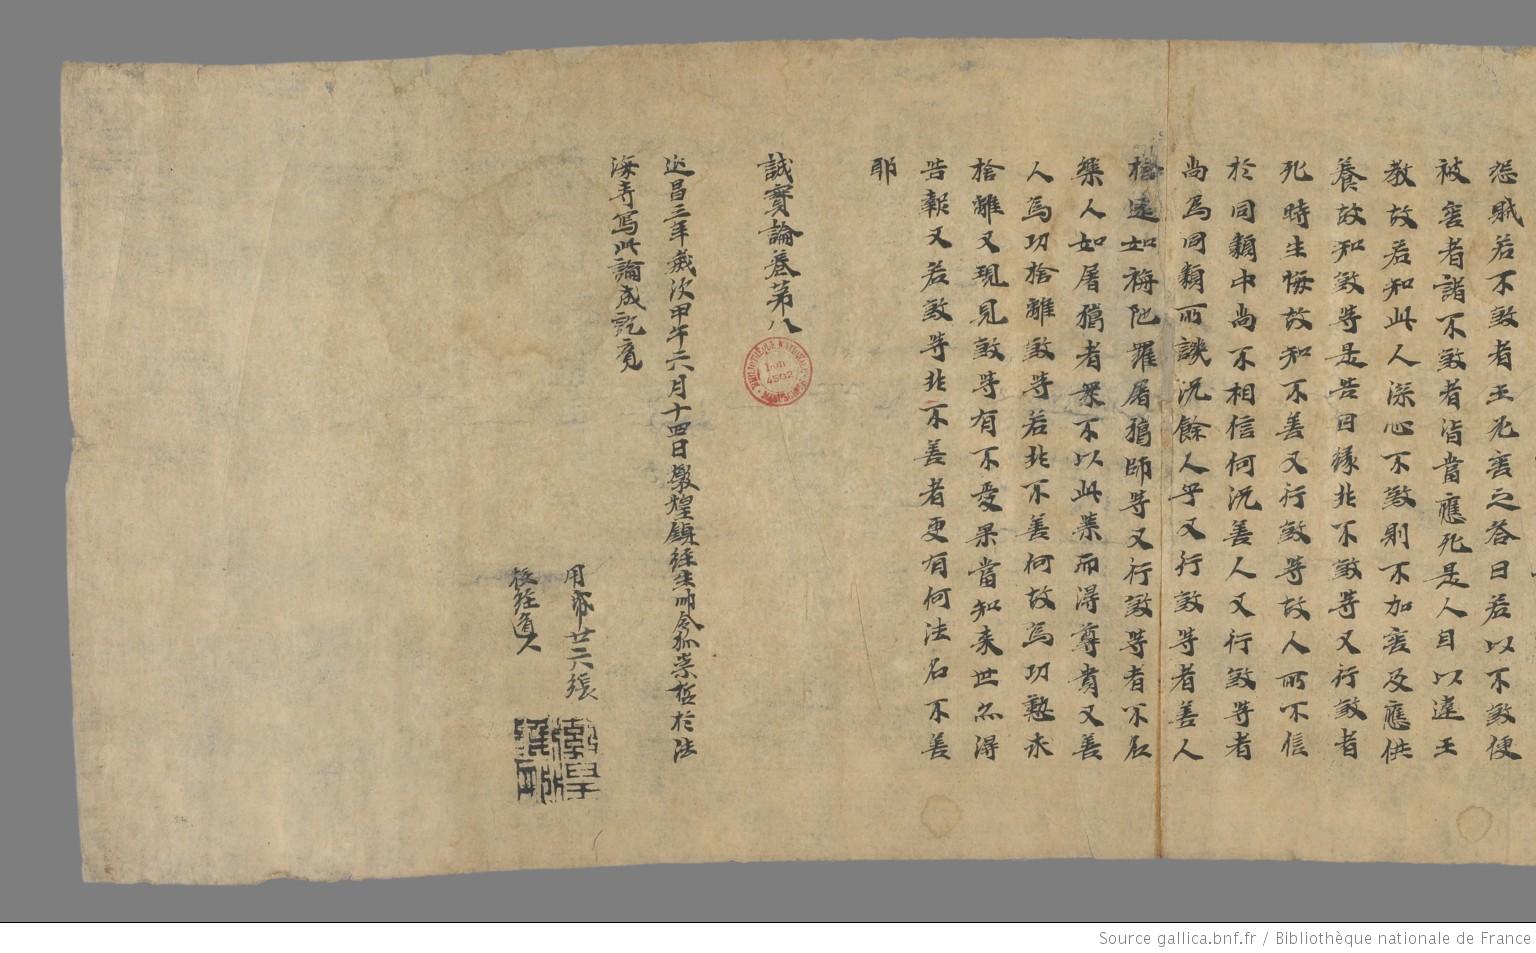 怨賊若不煞者王先害之荅曰若以不煞便
被害者諸不煞者皆當應死是人自以違王
教故若知此人深心不煞則不加害及應供
養故知煞等是苦因緣非不煞等又行煞者
死時生悔故知不善又行煞等故人所不信
於同類中尚不相信何況善人又行煞等者
尚為同類所譏況餘人乎又行煞等者善人
捨遠如旃陀羅屠獦師等又行煞等者不名
樂人如屠獦者衆不以此業而得尊貴又善
人為功捨離煞等若非不善何故為功懃求
捨離又現見煞等有不愛果當知來世亦得
苦報又若煞等非不善者更有何法名不善
耶
誠實論卷第八
延昌三年歲次甲午六月十四日敦煌鎮經生帥令狐崇哲於法
海寺寫此論成訖竟
用帋廿六張
校經道人
敦煌鎮印
BIBLIOTHÈQUE NATIONALE MANUSCRITS
4502
Source gallica.bnf.fr / Bibliothèque nationale de France